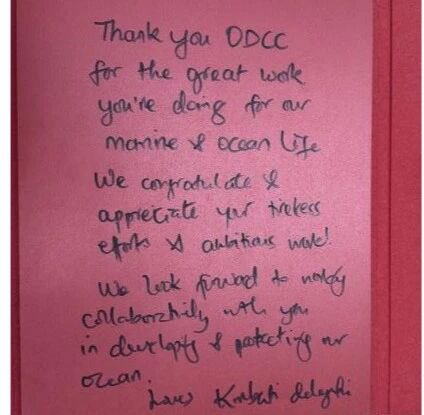 Thank you ODCC
for the great work
you're doing for our
marine & ocean life
We congratulate &
appreciate your tireless
efforts & ambitious work!
We look forward to working
collaboratively with you
in developing & protecting our
ocean.
Kiribati delegation